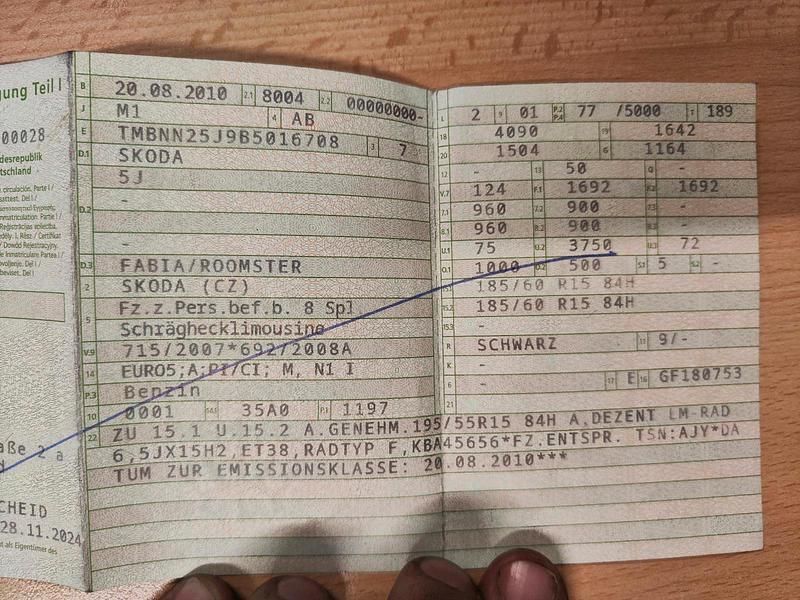 gung Teil I
00028
desrepublik
tschland
B 20.08.2010 2.1 8004 2.2 00000000-
J M1 4 AB
E TMBNN25J9B5016708 3 7
D.1 SKODA
5J
D.2 -
-
D.3 FABIA/ROOMSTER
2 SKODA (CZ)
5 Fz.z.Pers.bef.b. 8 Spl
Schräghecklimousine
V.9 715/2007*692/2008A
14 EURO5;A;PI/CI; M, N1 I
P.3 Benzin
10 0001 35A0 P.1 1197
L 2 9 01 P.2 P.4 77 /5000 T 189
18 4090 19 1642
20 1504 G 1164
12 - 13 50 Q -
V.7 124 F.1 1692 F.2 1692
7.1 960 7.2 900 7.3 -
8.1 960 8.2 900 8.3 -
U.1 75 U.2 3750 U.3 72
O.1 1000 O.2 500 S.1 5 S.2 -
185/60 R15 84H
15.2 185/60 R15 84H
15.3 -
R SCHWARZ 11 9/-
K -
6 - 17 E 16 GF180753
21
22 ZU 15.1 U.15.2 A.GENEHM.195/55R15 84H A.DEZENT LM-RAD
6,5JX15H2,ET38,RADTYP F,KBA45656*FZ.ENTSPR. TSN:AJY*DA
TUM ZUR EMISSIONSKLASSE: 20.08.2010***
aße 2 a
d
CHEID
28.11.2024